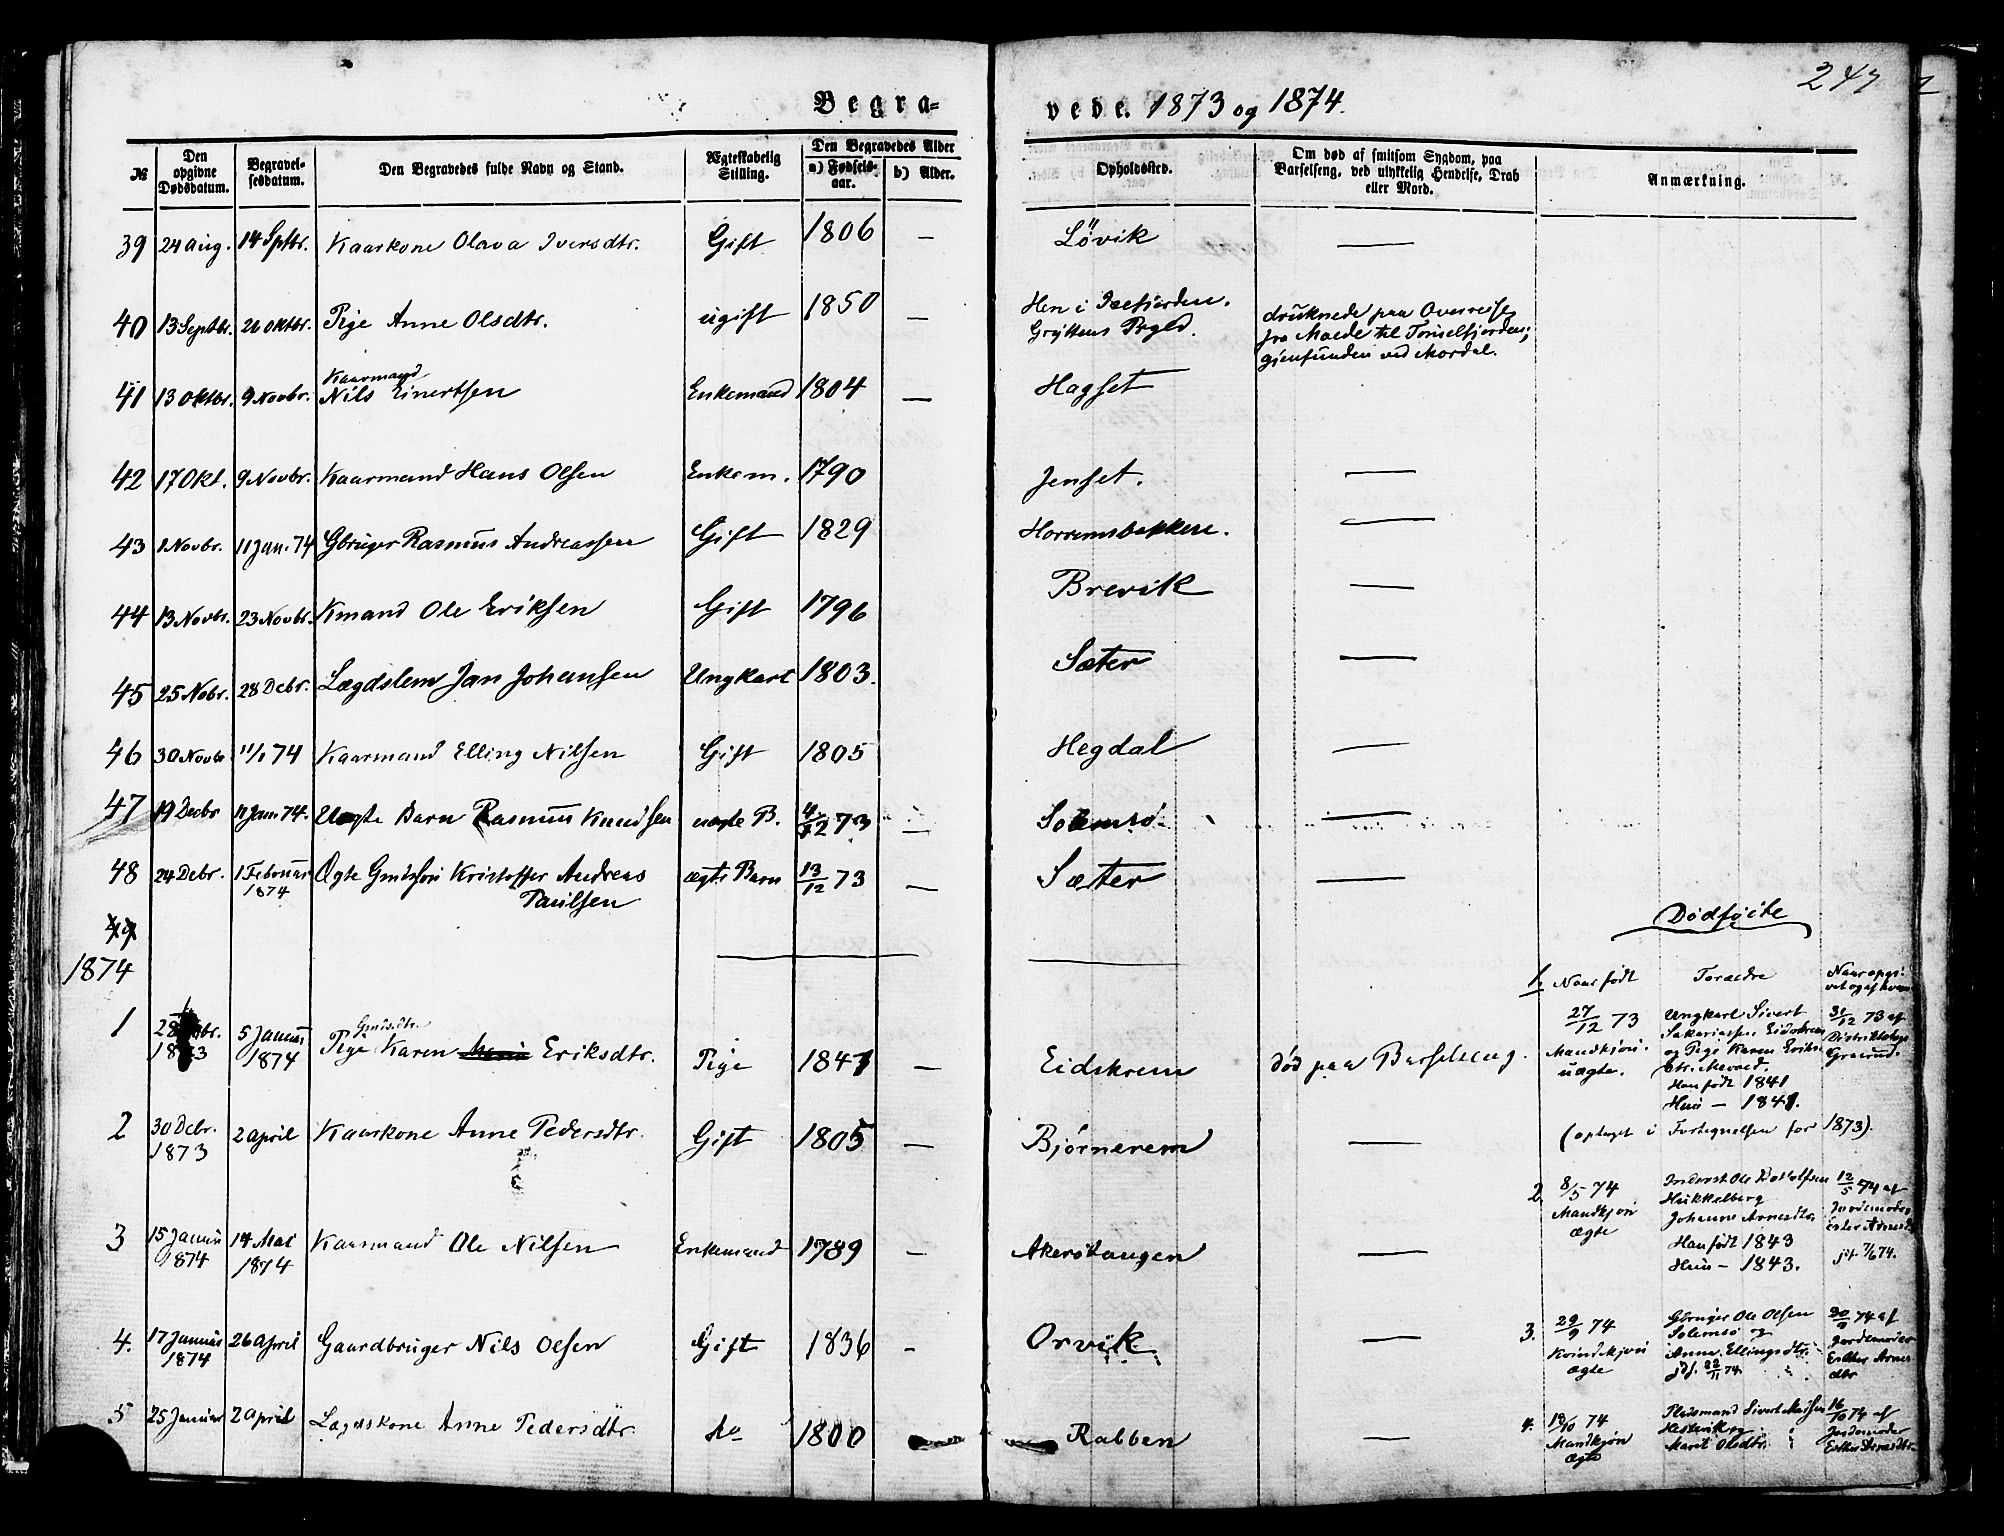 247
Begra-
vede. 1873 og 1874.
№ Den opgivne Dødsdatum. Begravel-sesdatum. Den Begravedes fulde Navn og Stand. Ægteskabelig Stilling. Den Begravedes Alder a) Fødsels-aar. b) Alder. Opholdssted. Om død af smitsom Sygdom, paa Barselseng, ved ulykkelig Hendelse, Drab eller Mord. Anmærkning.
39 24 Aug. 14 Septbr. Kaarkone Olava Iversdtr. Gift 1806 — Løvik —
40 13 Septbr. 26 oktbr. Pige Anne Olsdtr. ugift 1850 — Hen i Isefjorden. Gryttens Prgld. druknede paa Overreise
fra Molde til fjorden;
gjenfunden ved Mordal.
41 13 oktbr. 9 Novbr. Kaarmand Nils Einertsen Enkemand 1804 — Hagset
42 17 Okt. 9 Novbr. Kaarmand Hans Olsen Enkem. 1790 Jenset. —
43 1 Novbr. 11 Jan. 74 Gbruger Rasmus Andreassen Gift 1829 Horremsbakken. —
44 13 Novbr. 23 Novbr. Kmand Ole Eriksen Gift 1796 Brevik —
45 25 Nobr. 28 Debr. Lægdslem Jan Johansen Ungkarl 1803. Sæter —
46 30 Novbr 11/1 74 Kaarmand Elling Nilsen Gift 1805 Hegdal —
47 19 Decbr 11 Jan. 74. Uægte Barn Rasmus Knudsen uægte B. 4/12 73 — Solemsø. —
48 24 Debr. 1 Februar 1874 Ægte Gmdssøn Kristoffer Andreas
Paulsen ægte Barn 13/12 73 — Sæter —
49
Dødfødte
1874
1, Naar født Forældre Naar opgi-
vet og af hvem
1 28 br. 1873 5 Januar 1874 Gmdsdtr. Pige Karen Eriksdtr. Pige 1841 — Eidskrem død paa Barselseng.
27/12 73
Mandkjøn
uægte.
Ungkarl Sivert
Sakariassen Eidskrem
og Pige Karen Eriks-
dtr.
Han født 1841
Hun — 1841.
31/12 73 af
Distriktslæge
(optaget i Fortegnelsen for 1873).
2 30 Debr. 1873 2 April Kaarkone Anne Pedersdtr. Gift 1805 — Bjørnerem —
2. 8/5 74
Mandkjøn
ægte
Ole
Johanne Arnesdtr
Han født 1843
Hun — 1843.
12/5 74 af
Jordemoder
Ester Arnesdt
3 15 Januar 1874 14 Mai 1874 Kaarmand Ole Nilsen Enkemand 1789 — Akerstangen —
4. 17 Januar 1874 26 April Gaardbruger Nils Olsen Gift 1836 — Orvik —
3. 29/9 74
Kvindkjøn
ægte
Gbruger Ole Olsen
Solemsø og
Anne Ellingsdtr
30/9 74 af
Jordemoder
Esther Arnes-
dtr
5 25 Januar 2 April Lægdskone Anne Pedersdtr. do 1800 — Rabben —
4. 19/10 74
Mandkjøn
ægte
Pladsmand Sivert
Marit Olsdtr.
16/10 74 af
Jordemoder
Esther Arnesdtr.